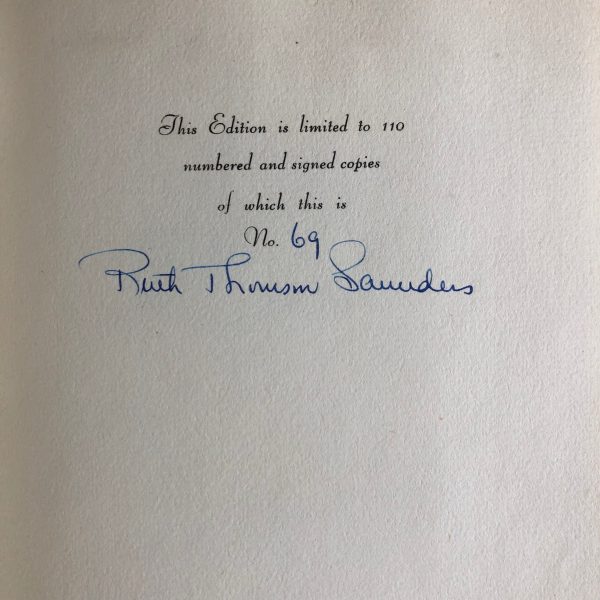 This Edition is limited to 110
numbered and signed copies
of which this is
No. 69
Ruth Thomson Saunders